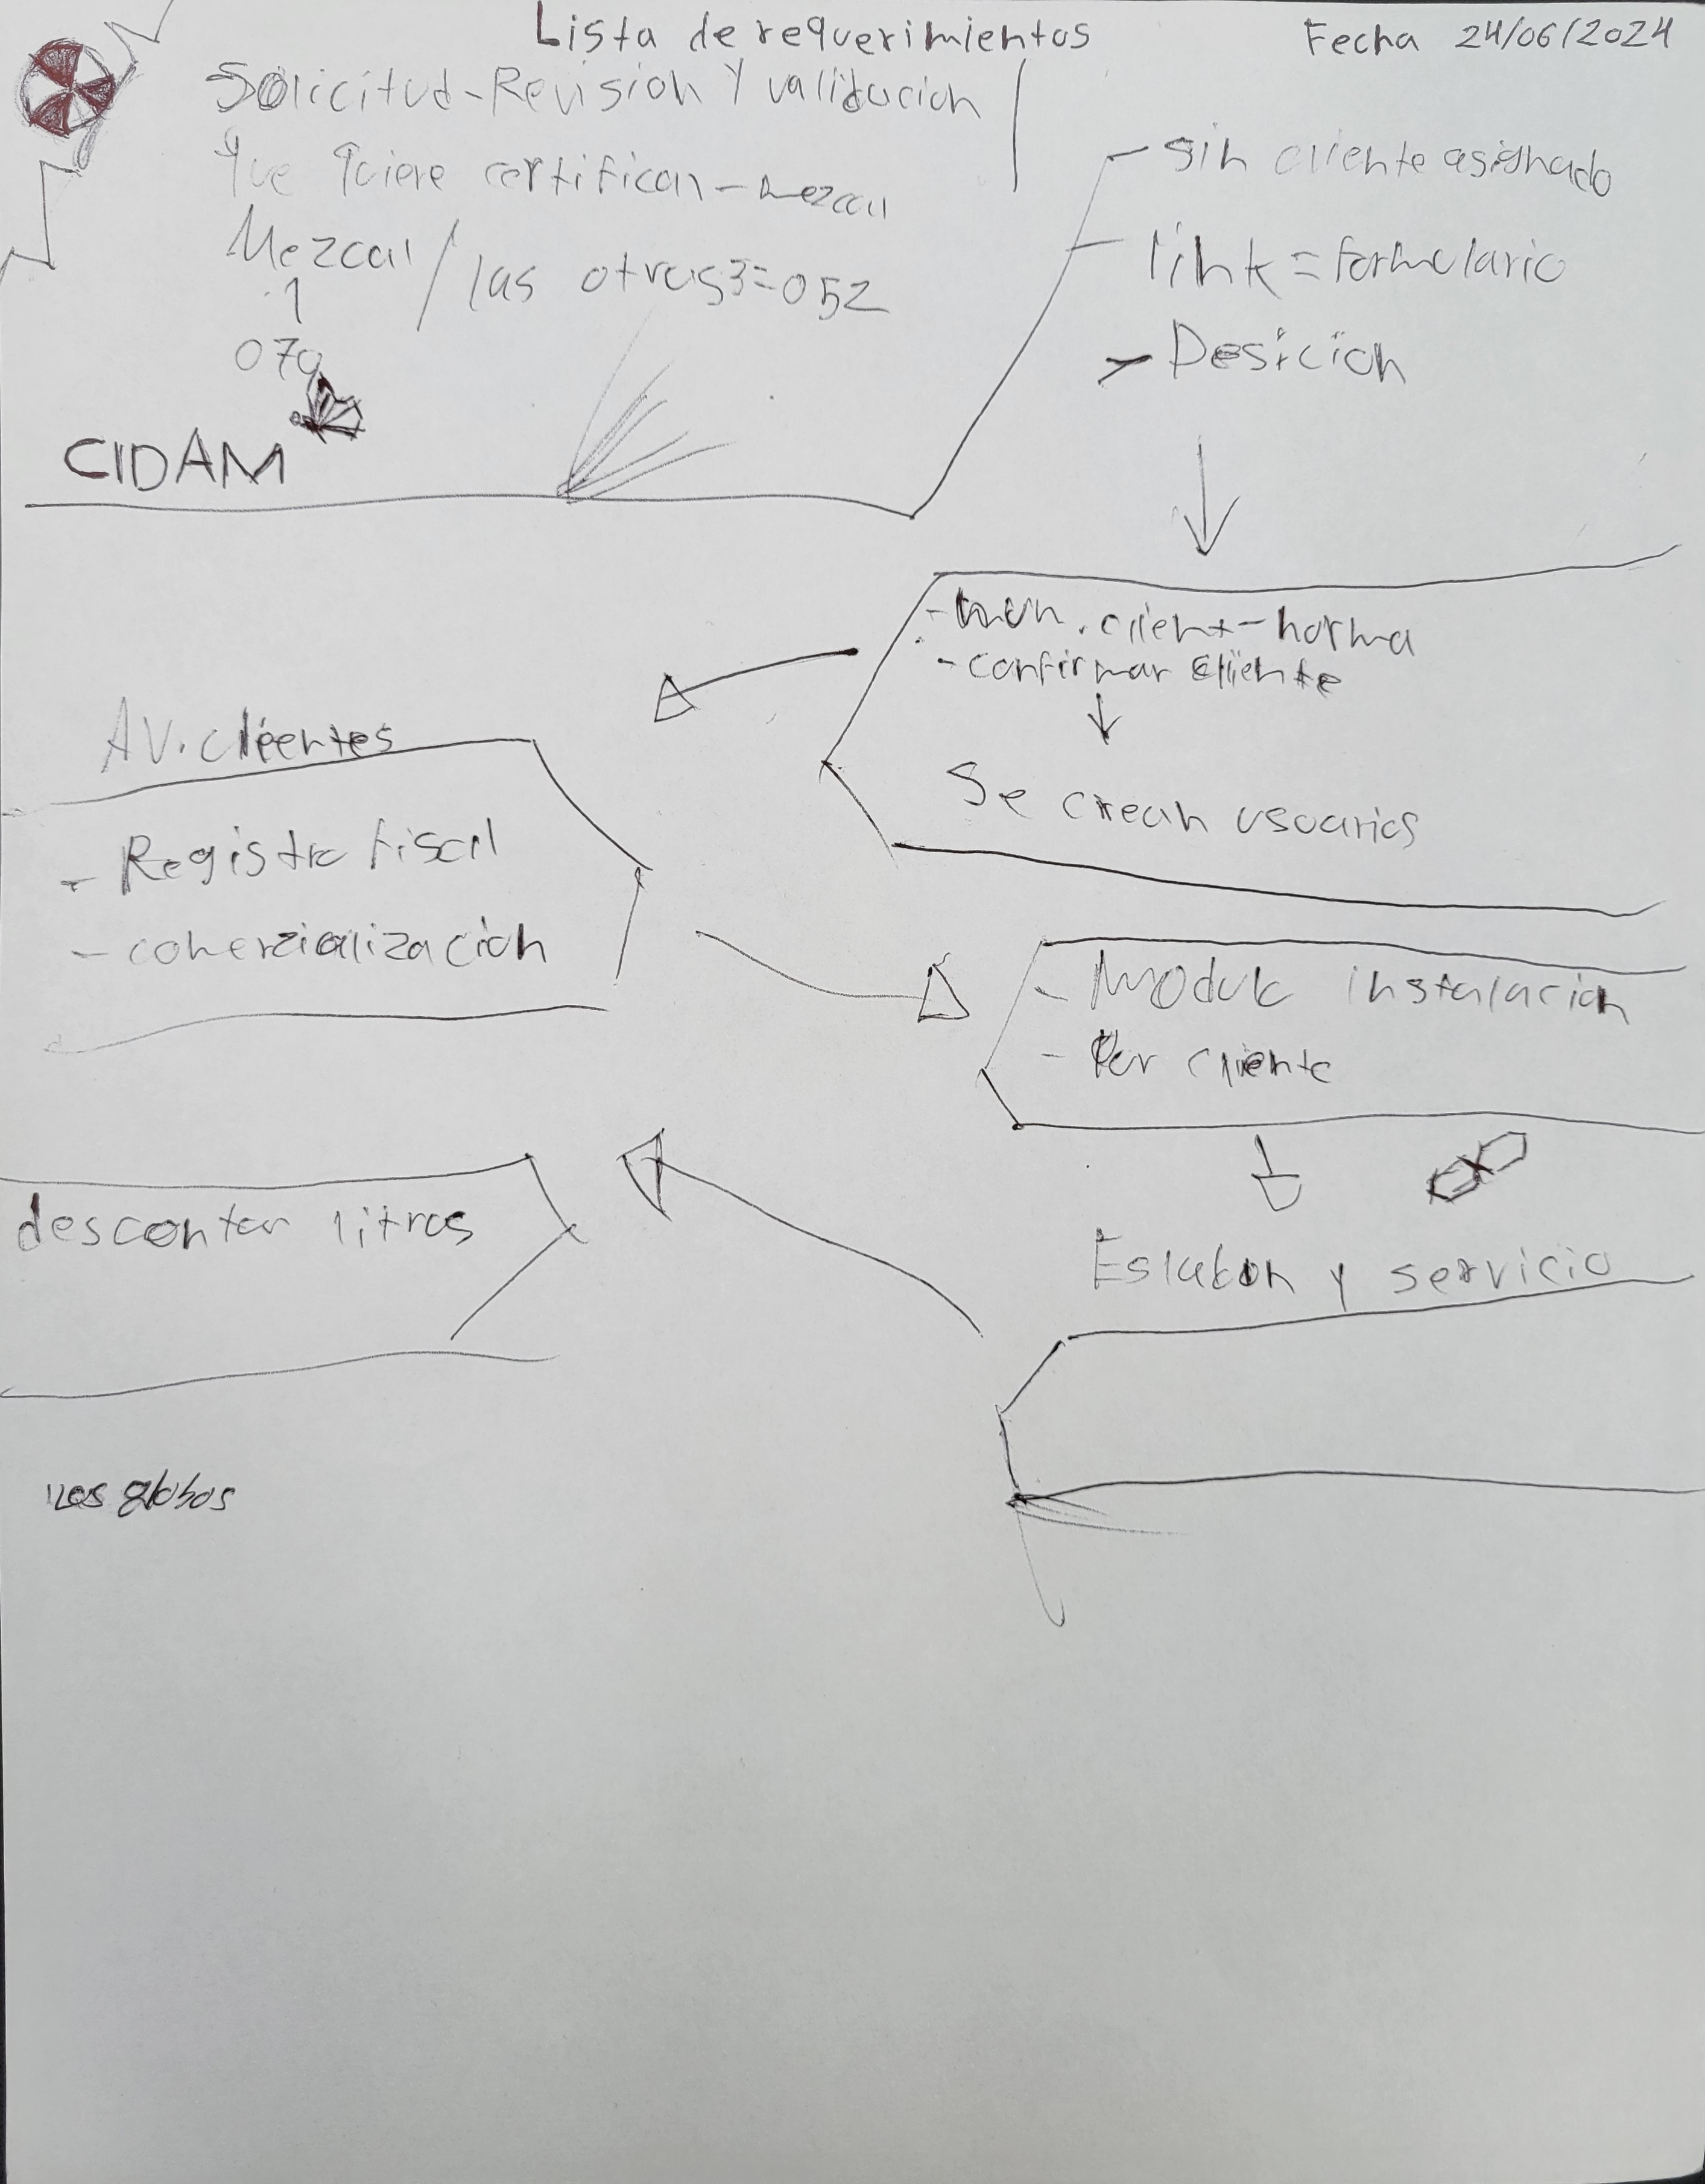 Lista de requerimientos
Fecha 24/06/2024
Solicitud-Revision Y validacion
que quiere certificar - mezcal
Mezcal / las otras 3=052
1
070
CIDAM
- sin cliente asignado
- link = formulario
- Desicion
- . client - norma
- confirmar cliente
Se crean usuarios
AV. clientes
- Registro fiscal
- comerzialización
- Modulo instalacion
- Por cliente
Eslabon y servicio
descontar litros
los globos